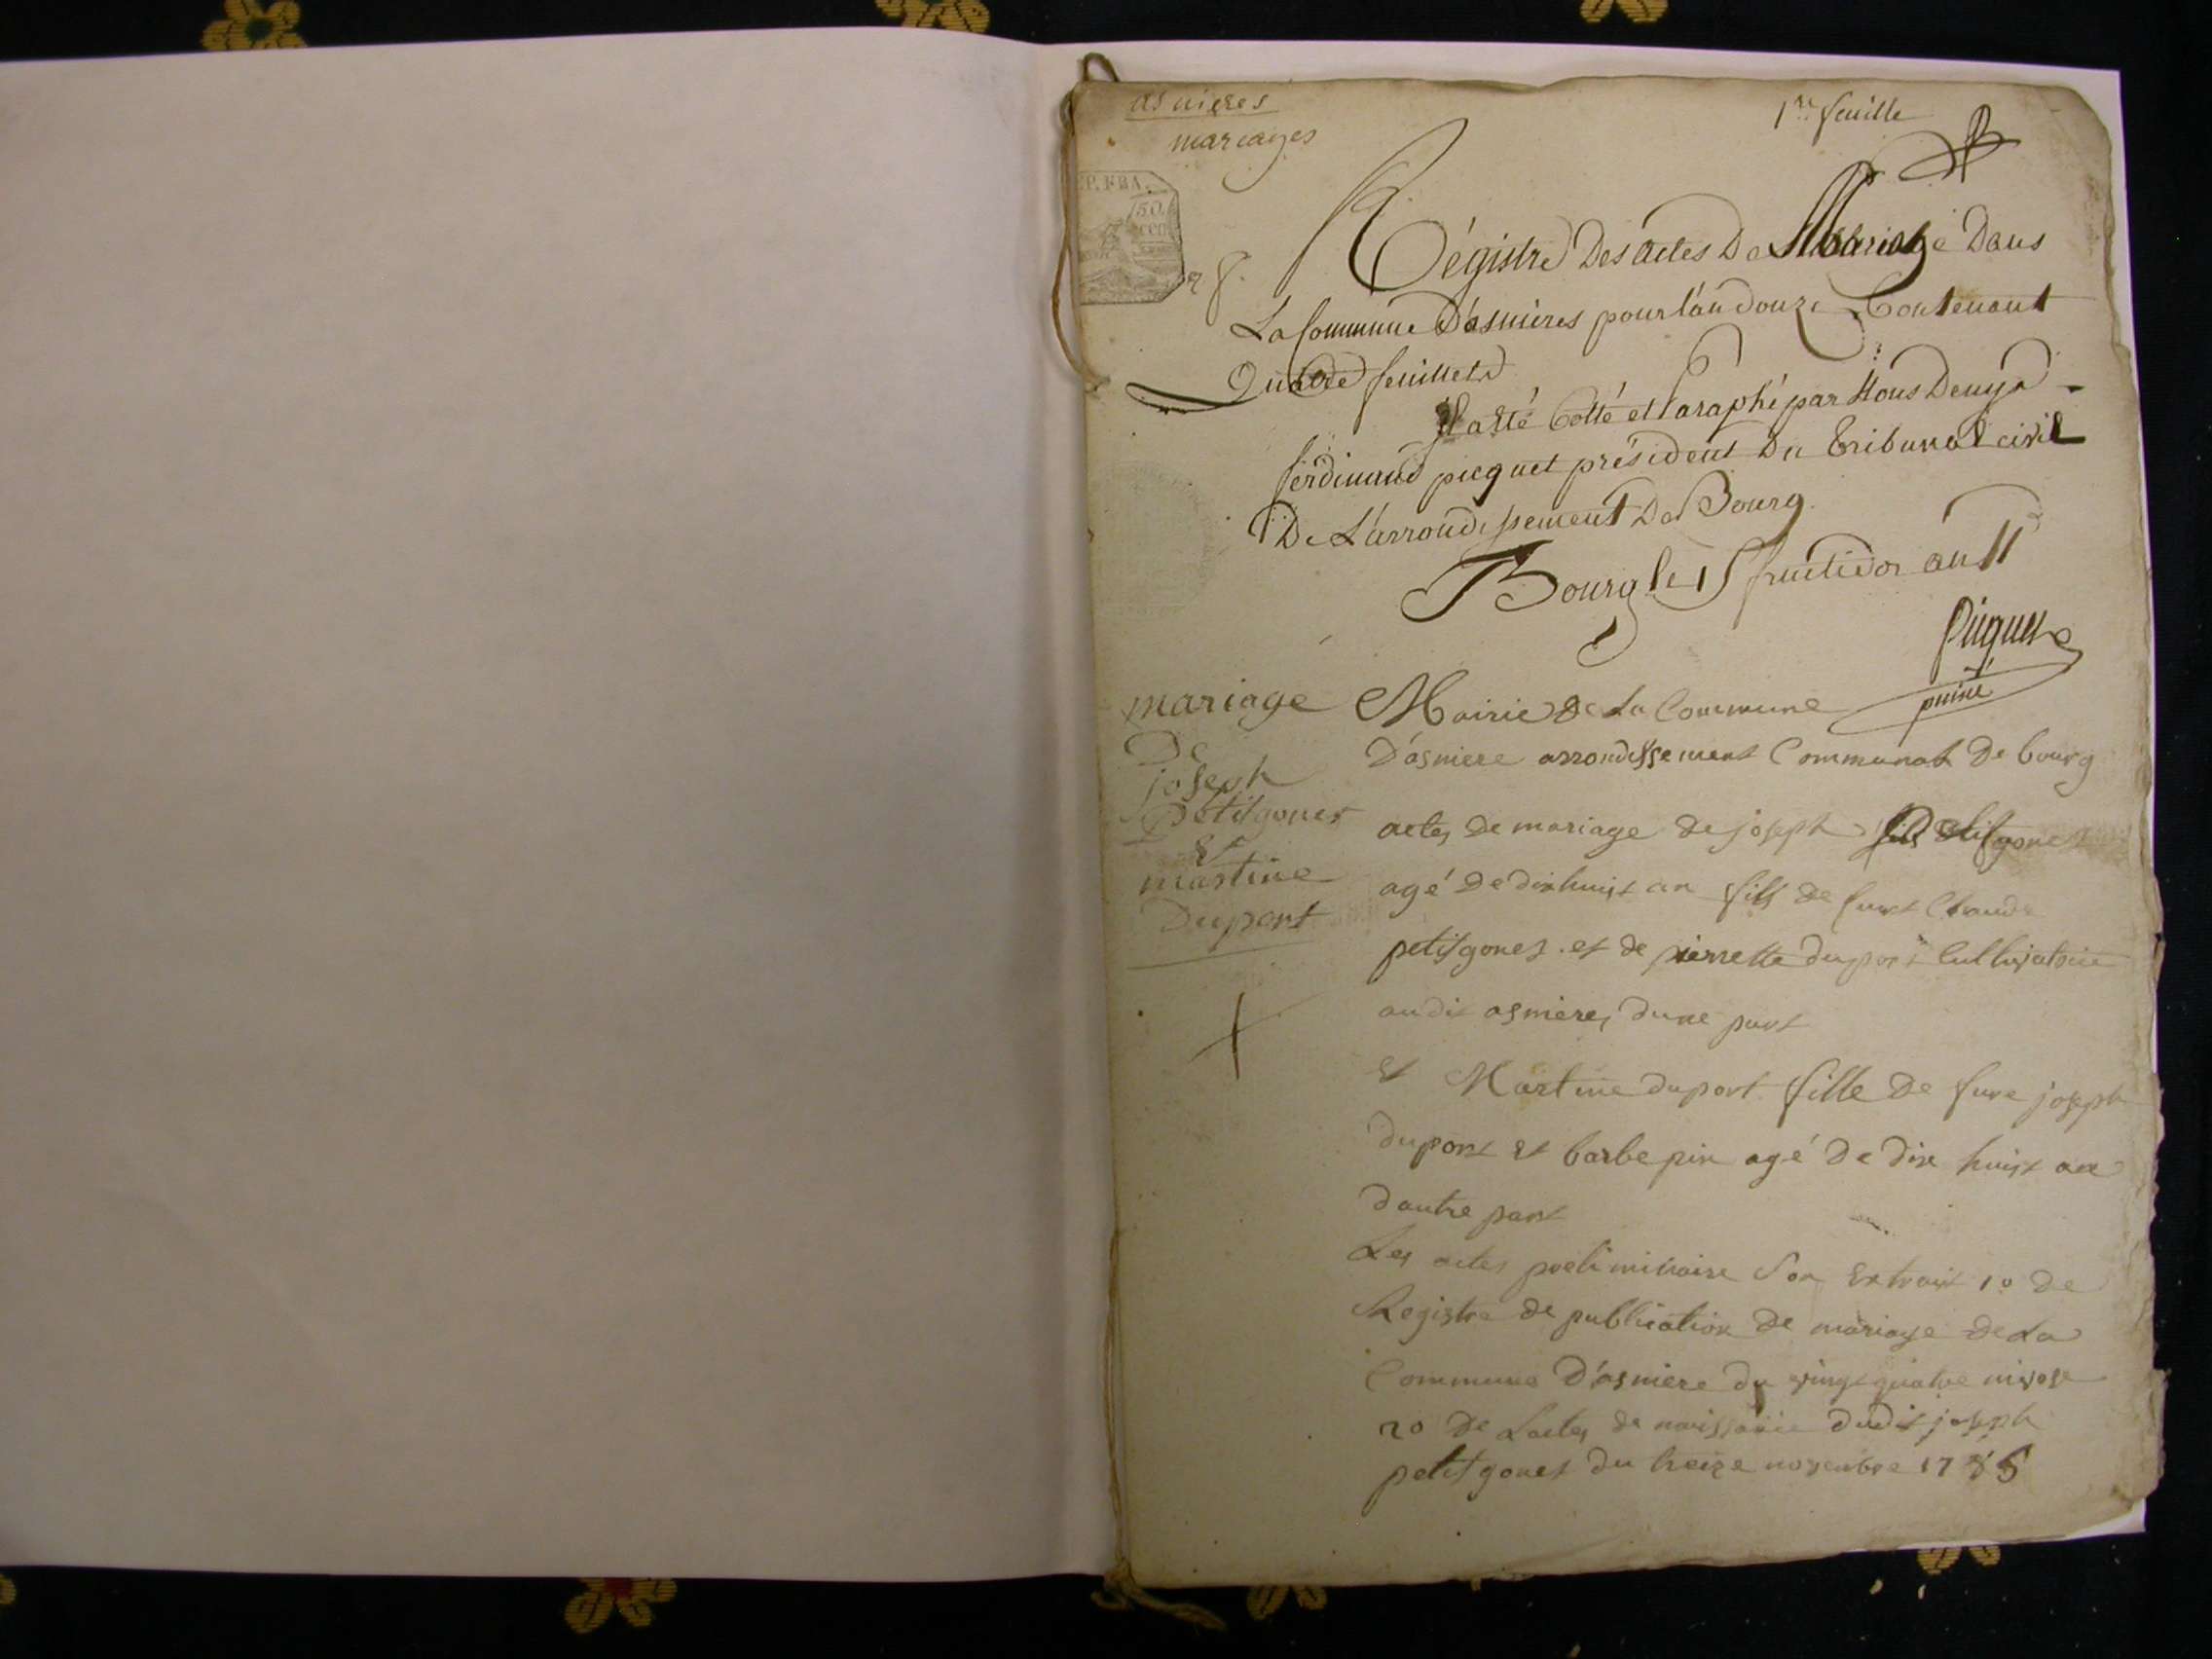 asnieres
mariages
1re feuille
P. FRA.
50.
Régistre Des actes De Mariage Dans
La Commune D'asnieres pour l'an douze Contenant
Quatre feuillets
Il a été Cotté et Paraphé par Nous Denys
ferdinand picquet président Du Tribunal civil
De L'arrondissement De Bourg.
Bourg le 15 fructidor an 11
Picquet
puiné
mariage
De
joseph
petitgonet
et
martine
Duport
Mairie de La Commune
D'asniere arrondissement Communal De bourg
actes de mariage de joseph petitgonet
agé De dix huit an fils de funt Claude
petitgonet et de pierrette duport Cultivatrice
audit asnieres dune part
et Martine duport fille De fure joseph
duport et barbe pin agé De dix huit an
dautre part
Les actes preliminaire Son Extrait 1o de
Registre de publication de mariage de La
Commune D'asniere du vingt quatre nivose
2o de Lactes de naissance dudit joseph
petitgonet du treize novembre 1785